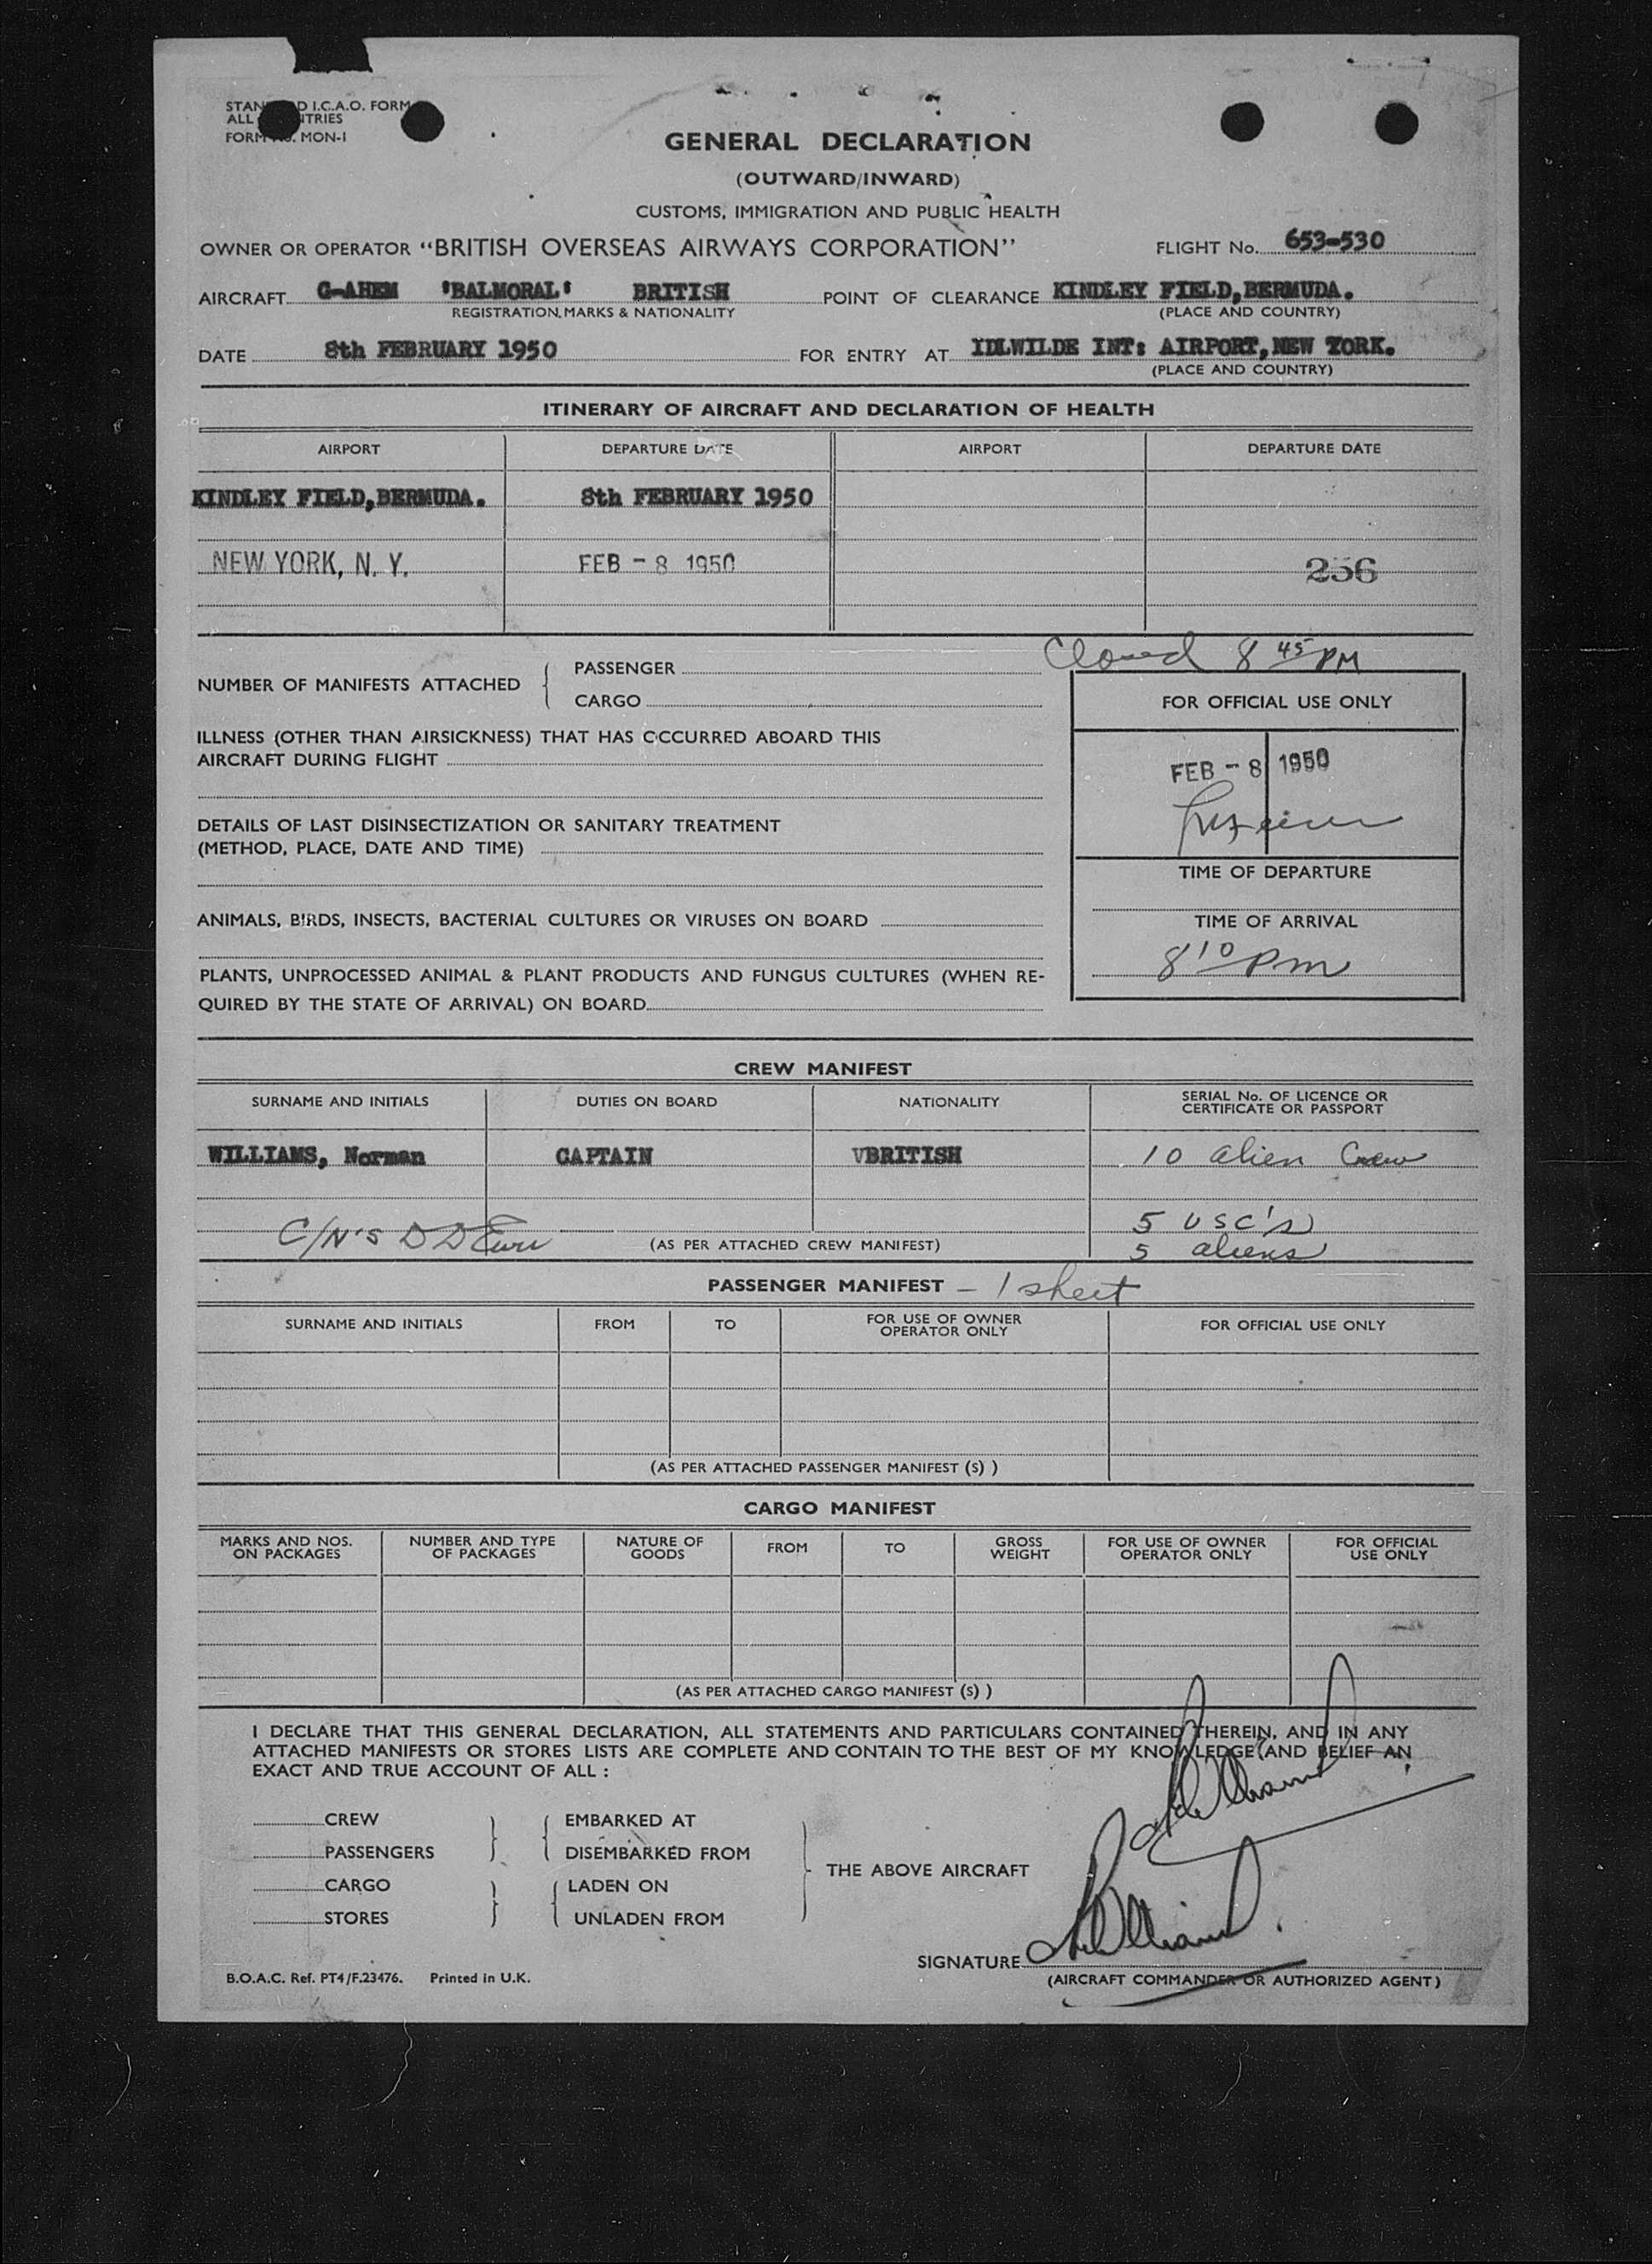 STAN D I.C.A.O. FORM
ALL NTRIES
FORM No. MON-1
GENERAL DECLARATION
(OUTWARD/INWARD)
CUSTOMS, IMMIGRATION AND PUBLIC HEALTH
OWNER OR OPERATOR "BRITISH OVERSEAS AIRWAYS CORPORATION" FLIGHT No. 653-530
AIRCRAFT G-AHEM 'BALMORAL' BRITISH POINT OF CLEARANCE KINDLEY FIELD, BERMUDA.
REGISTRATION, MARKS & NATIONALITY (PLACE AND COUNTRY)
DATE 8th FEBRUARY 1950 FOR ENTRY AT IDLWILDE INT: AIRPORT, NEW YORK.
(PLACE AND COUNTRY)
ITINERARY OF AIRCRAFT AND DECLARATION OF HEALTH
AIRPORT DEPARTURE DATE AIRPORT DEPARTURE DATE
KINDLEY FIELD, BERMUDA. 8th FEBRUARY 1950
NEW YORK, N. Y. FEB - 8 1950 256
Closed 8 45 PM
NUMBER OF MANIFESTS ATTACHED
PASSENGER
CARGO
FOR OFFICIAL USE ONLY
ILLNESS (OTHER THAN AIRSICKNESS) THAT HAS OCCURRED ABOARD THIS
AIRCRAFT DURING FLIGHT
FEB - 8 1950
DETAILS OF LAST DISINSECTIZATION OR SANITARY TREATMENT
(METHOD, PLACE, DATE AND TIME)
TIME OF DEPARTURE
ANIMALS, BIRDS, INSECTS, BACTERIAL CULTURES OR VIRUSES ON BOARD
TIME OF ARRIVAL
8 10 PM
PLANTS, UNPROCESSED ANIMAL & PLANT PRODUCTS AND FUNGUS CULTURES (WHEN RE-
QUIRED BY THE STATE OF ARRIVAL) ON BOARD
CREW MANIFEST
SURNAME AND INITIALS DUTIES ON BOARD NATIONALITY SERIAL No. OF LICENCE OR
CERTIFICATE OR PASSPORT
WILLIAMS, Norman CAPTAIN VBRITISH 10 alien Crew
5 USC's
C/N'S (AS PER ATTACHED CREW MANIFEST) 5 aliens
PASSENGER MANIFEST - 1 sheet
SURNAME AND INITIALS FROM TO FOR USE OF OWNER
OPERATOR ONLY FOR OFFICIAL USE ONLY
(AS PER ATTACHED PASSENGER MANIFEST (S) )
CARGO MANIFEST
MARKS AND NOS.
ON PACKAGES NUMBER AND TYPE
OF PACKAGES NATURE OF
GOODS FROM TO GROSS
WEIGHT FOR USE OF OWNER
OPERATOR ONLY FOR OFFICIAL
USE ONLY
(AS PER ATTACHED CARGO MANIFEST (S) )
I DECLARE THAT THIS GENERAL DECLARATION, ALL STATEMENTS AND PARTICULARS CONTAINED THEREIN, AND IN ANY
ATTACHED MANIFESTS OR STORES LISTS ARE COMPLETE AND CONTAIN TO THE BEST OF MY KNOWLEDGE AND BELIEF AN
EXACT AND TRUE ACCOUNT OF ALL :
CREW EMBARKED AT
PASSENGERS DISEMBARKED FROM
THE ABOVE AIRCRAFT
CARGO LADEN ON
STORES UNLADEN FROM
SIGNATURE Williams
(AIRCRAFT COMMANDER OR AUTHORIZED AGENT)
B.O.A.C. Ref. PT4/F.23476. Printed in U.K.